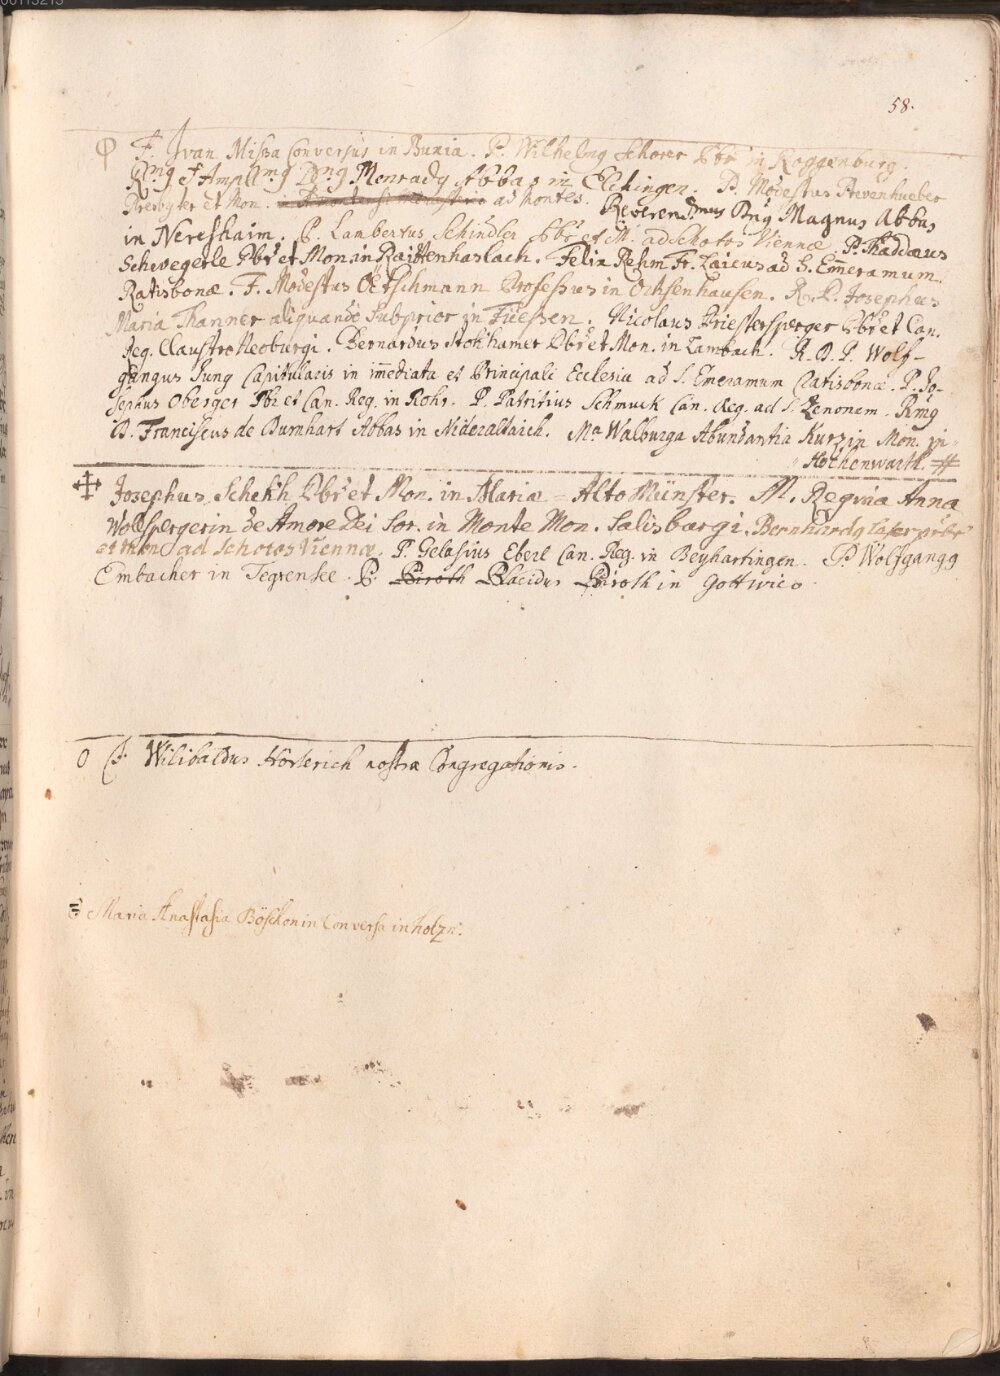 58.
F. Ivan Missa Conversus in Buria. P. Wilhelmg Schorer Pbr in Roggenburg
Rmg et Amplmg Dng Monradg Abbas in Elchingen. P. Modestus Prevenhueber
Presbyter et Mon. ad Montes. Reverendismus Dng Magnus Abbas
in Neresheim. P. Lambertus Schindler Pbr et M. ad Schotos Viennæ. P. Thaddæus
Schwegerle Pbr et Mon. in Raittenhaslach. Felix Rehm Fr. Laicus ad S. Emeramum
Ratisbonæ. F. Modestus Oetschmann Professus in Ochsenhausen. R. P. Josephus
Maria Thanner aliquando Subprior in Füessen. Nicolaus Priestersperger Pbr et Can.
Reg. Claustro Neoburgi. Bernardus Stokhamer Pbr et Mon. in Lambach. R. D. P. Wolf-
gangus Jung Capitularis in immediata et Principali Ecclesia ad S. Emeramum Ratisbonæ. P. Jo-
sephus Oberger Pbr et Can. Reg. in Rohr. P. Patritius Schmuck Can. Reg. ad S. Zenonem. Rmg
D. Franciscus de Durnhart Abbas in Nideraltaich. Ma Walburga Abundantia Kurz in Mon. in
Hochenwarth. #
Josephus Schekh Pbr et Mon. in Mariæ = Alto Münster. M. Regina Anna
Wolfspergerin de Amore Dei Sor. in Monte Mon. Salisburgi. Bernhardg Laser prbr
et Mon ad Schotos Viennæ. P. Gelasius Eberl Can. Reg. in Beyhartingen. P. Wolfgangg
Embacher in Tegrensee. P. Piroth Placidus Piroth in Gottwico.
O P. Wilibaldus Hörterich nostræ Congregationis.
Maria Anastasia Böschonin Conversa in holzn.